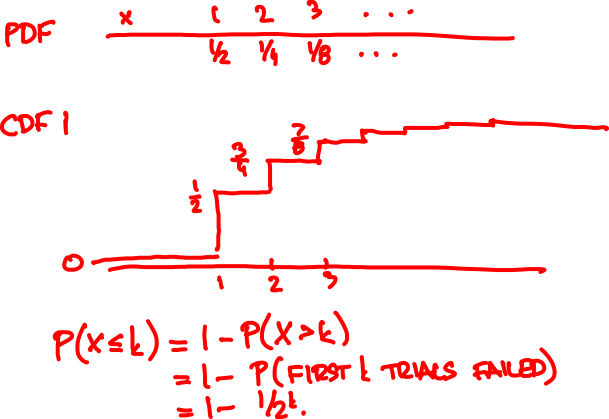 PDF x 1 2 3 ...
1/2 1/4 1/8 ...
CDF 1
7/8
3/4
1/2
0
1 2 3
P(X≤k) = 1 - P(X>k)
= 1 - P(FIRST k TRIALS FAILED)
= 1 - 1/2^k.